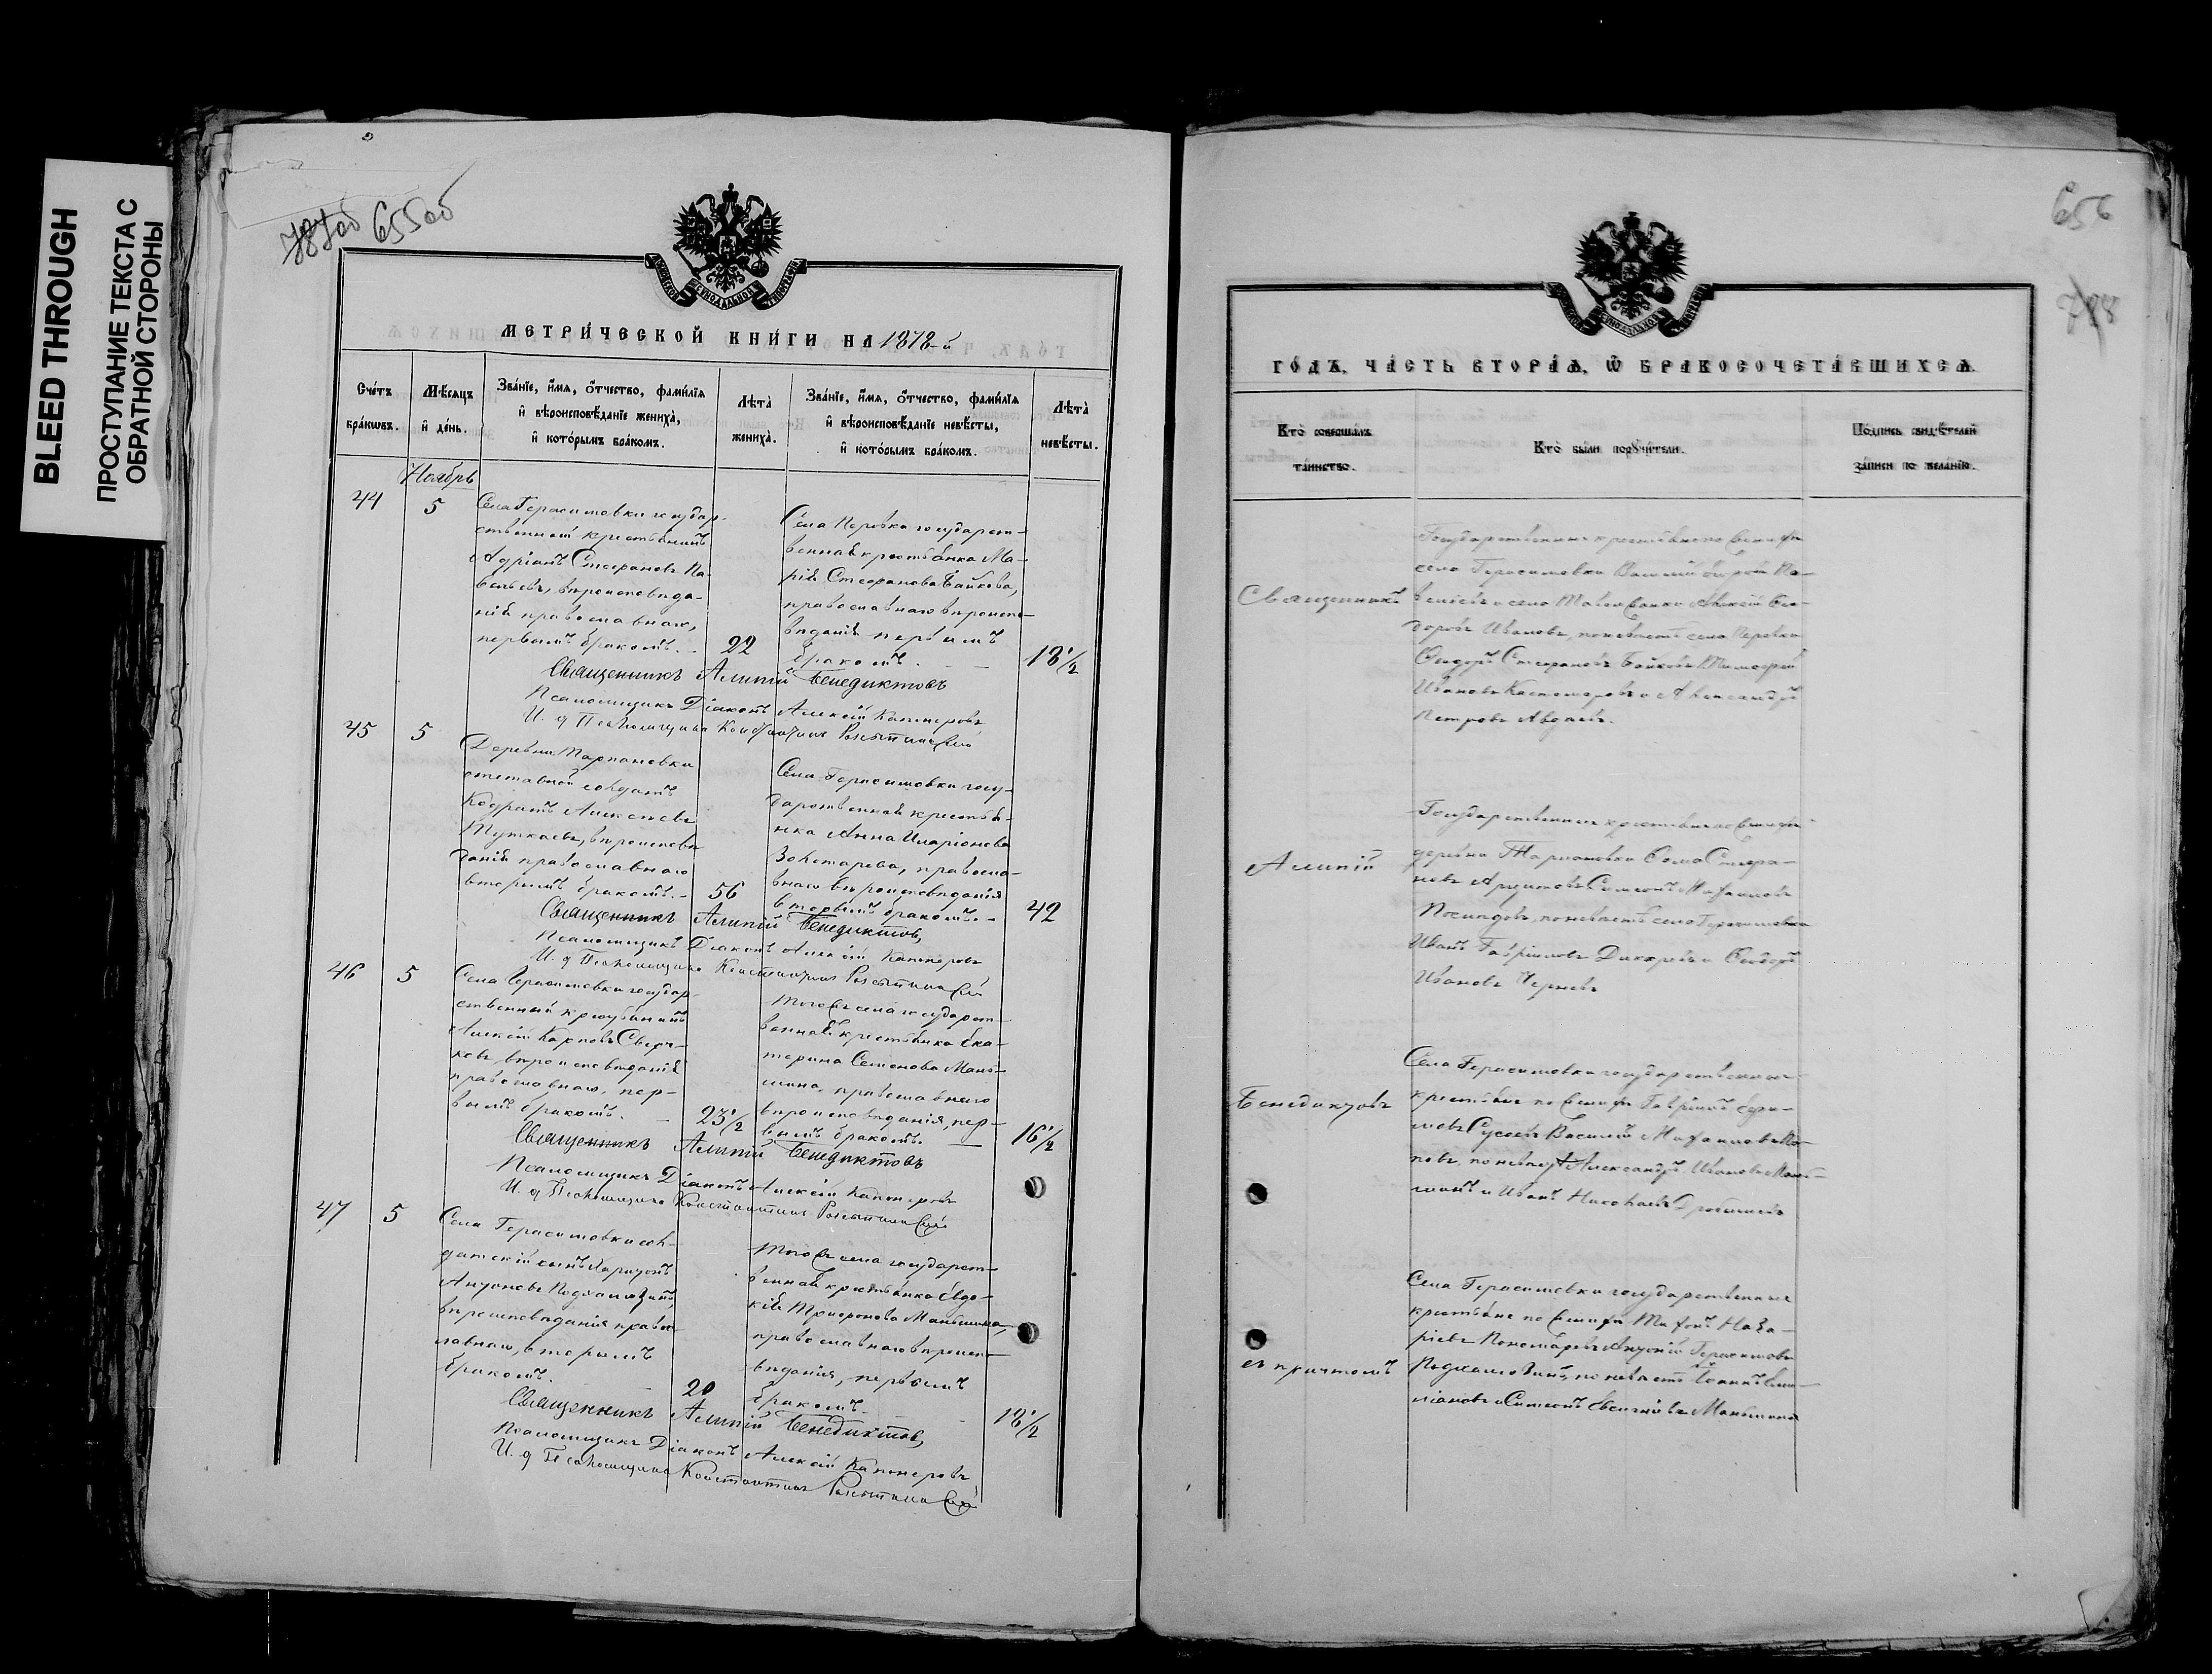 BLEED THROUGH
ПРОСТУПАНИЕ ТЕКСТА С
ОБРАТНОЙ СТОРОНЫ
787об 655об
МЕТРИ́ЧЕСКОЙ КНИ́ГИ НА 1878-й
Сче́тъ бра́кѡвъ.
Мѣ́сяцъ и҆ де́нь.
Зва́нїе, и҆́мя, ѻ҆́тчество, фами́лїя
и҆ вѣроисповѣ́данїе жениха̀,
и҆ кото́рымъ бра́комъ.
Лѣта̀ жениха̀.
Зва́нїе, и҆́мя, ѻ҆́тчество, фами́лїя
и҆ вѣроисповѣ́данїе невѣ́сты,
и҆ кото́рымъ бра́комъ.
Лѣта̀ невѣ́сты.
Ноябрь
44
5
Села Герасимовки государ-
ственный крестьянинъ
Адріанъ Стефановъ Па-
вельевъ, вѣроисповѣда-
нія православнаго,
первымъ бракомъ.
22
Села Перевка государст-
венная крестьянка Ма-
рія Стефанова Байкова,
православнаго вѣроиспо-
вѣданія первымъ
бракомъ.
18 1/2
Священникъ Алипій Бенедиктовъ
Псаломщикъ Діаконъ Алексій Капнеровъ
И. д. Псаломщика Константинъ
45
5
Деревни Тарпановки
отставной солдатъ
Кодратъ Алексѣевъ
Туткаевъ, вѣроисповѣ
данія православнаго
вторымъ бракомъ.
56
Села Герасимовки госу-
дарственная крестья-
нка Анна Иларіонова
Золотарева, правосла-
внаго вѣроисповѣданія
вторымъ бракомъ.
42
Священникъ Алипій Бенедиктов,
Псаломщикъ Діаконъ Алексій Капнеровъ
И. д. Псаломщика Константинъ
46
5
Села Герасимовки государ-
ственный крестьянинъ
Алексій Карповъ Сверч-
ковъ, вѣроисповѣданія
православнаго, пер-
вымъ бракомъ.
23 1/2
Тогоже села государст-
венная крестьянка Ека-
терина Семенова Мань-
шина, православнаго
вѣроисповѣданія, пер-
вымъ бракомъ.
16 1/2
Священникъ Алипій Бенедиктовъ
Псаломщикъ Діаконъ Алексій Капнеровъ
И. д. Псаломщика Константинъ
47
5
Села Герасимовки сол-
датскій сынъ Харитонъ
Антоновъ Подколюзинъ,
вѣроисповѣданія правос-
лавнаго, вторымъ
бракомъ.
20
Тогоже села государст-
венная крестьянка Евдо-
кія Трифонова Маньшина,
православнаго вѣроиспо-
вѣданія, первымъ
бракомъ.
18 1/2
Священникъ Алипій Бенедиктов,
Псаломщикъ Діаконъ Алексій Капнеровъ
И. д. Псаломщика Константинъ
656
788
ГО́ДЪ, ЧА́СТЬ ВТОРА́Я, Ѡ҆ БРАКОСОЧЕТА́ВШИХСЯ.
Кто̀ соверша́лъ
та́инство.
Кто̀ бы́ли порꙋчи́тели.
По́дпись свидѣ́телей
за́писи по жела́нїю.
Священникъ
Алипій
Бенедиктовъ
съ причтомъ
Государственные крестьяне по женихѣ
села Герасимовки Василій
и села Алексій Фео-
доровъ Ивановъ, по невѣстѣ села Перевки
Феодоръ Стефановъ Байковъ Тимофей
Ивановъ и Александръ
Петровъ Авдѣевъ.
Государственные крестьяне по женихѣ
деревни Тарпановки Фома Стефа-
новъ Симеонъ Михаиловъ
по невѣстѣ села Герасимовки
Иванъ Гавріиловъ и Феодоръ
Ивановъ Черневъ
Села Герасимовки государственные
крестьяне по женихѣ Гавріилъ Ефи-
мовъ Гусевъ Василій Михаиловъ По-
повъ, по невѣстѣ Александръ Ивановъ Мань-
шинъ и Иванъ Николаевъ Дробышевъ
Села Герасимовки государственные
крестьяне по женихѣ Наза-
ріевъ Пономаревъ Антоній Герасимовъ
Подколюзинъ, по невѣстѣ Іоаннъ Еми-
ліановъ и Симеонъ Маньшины